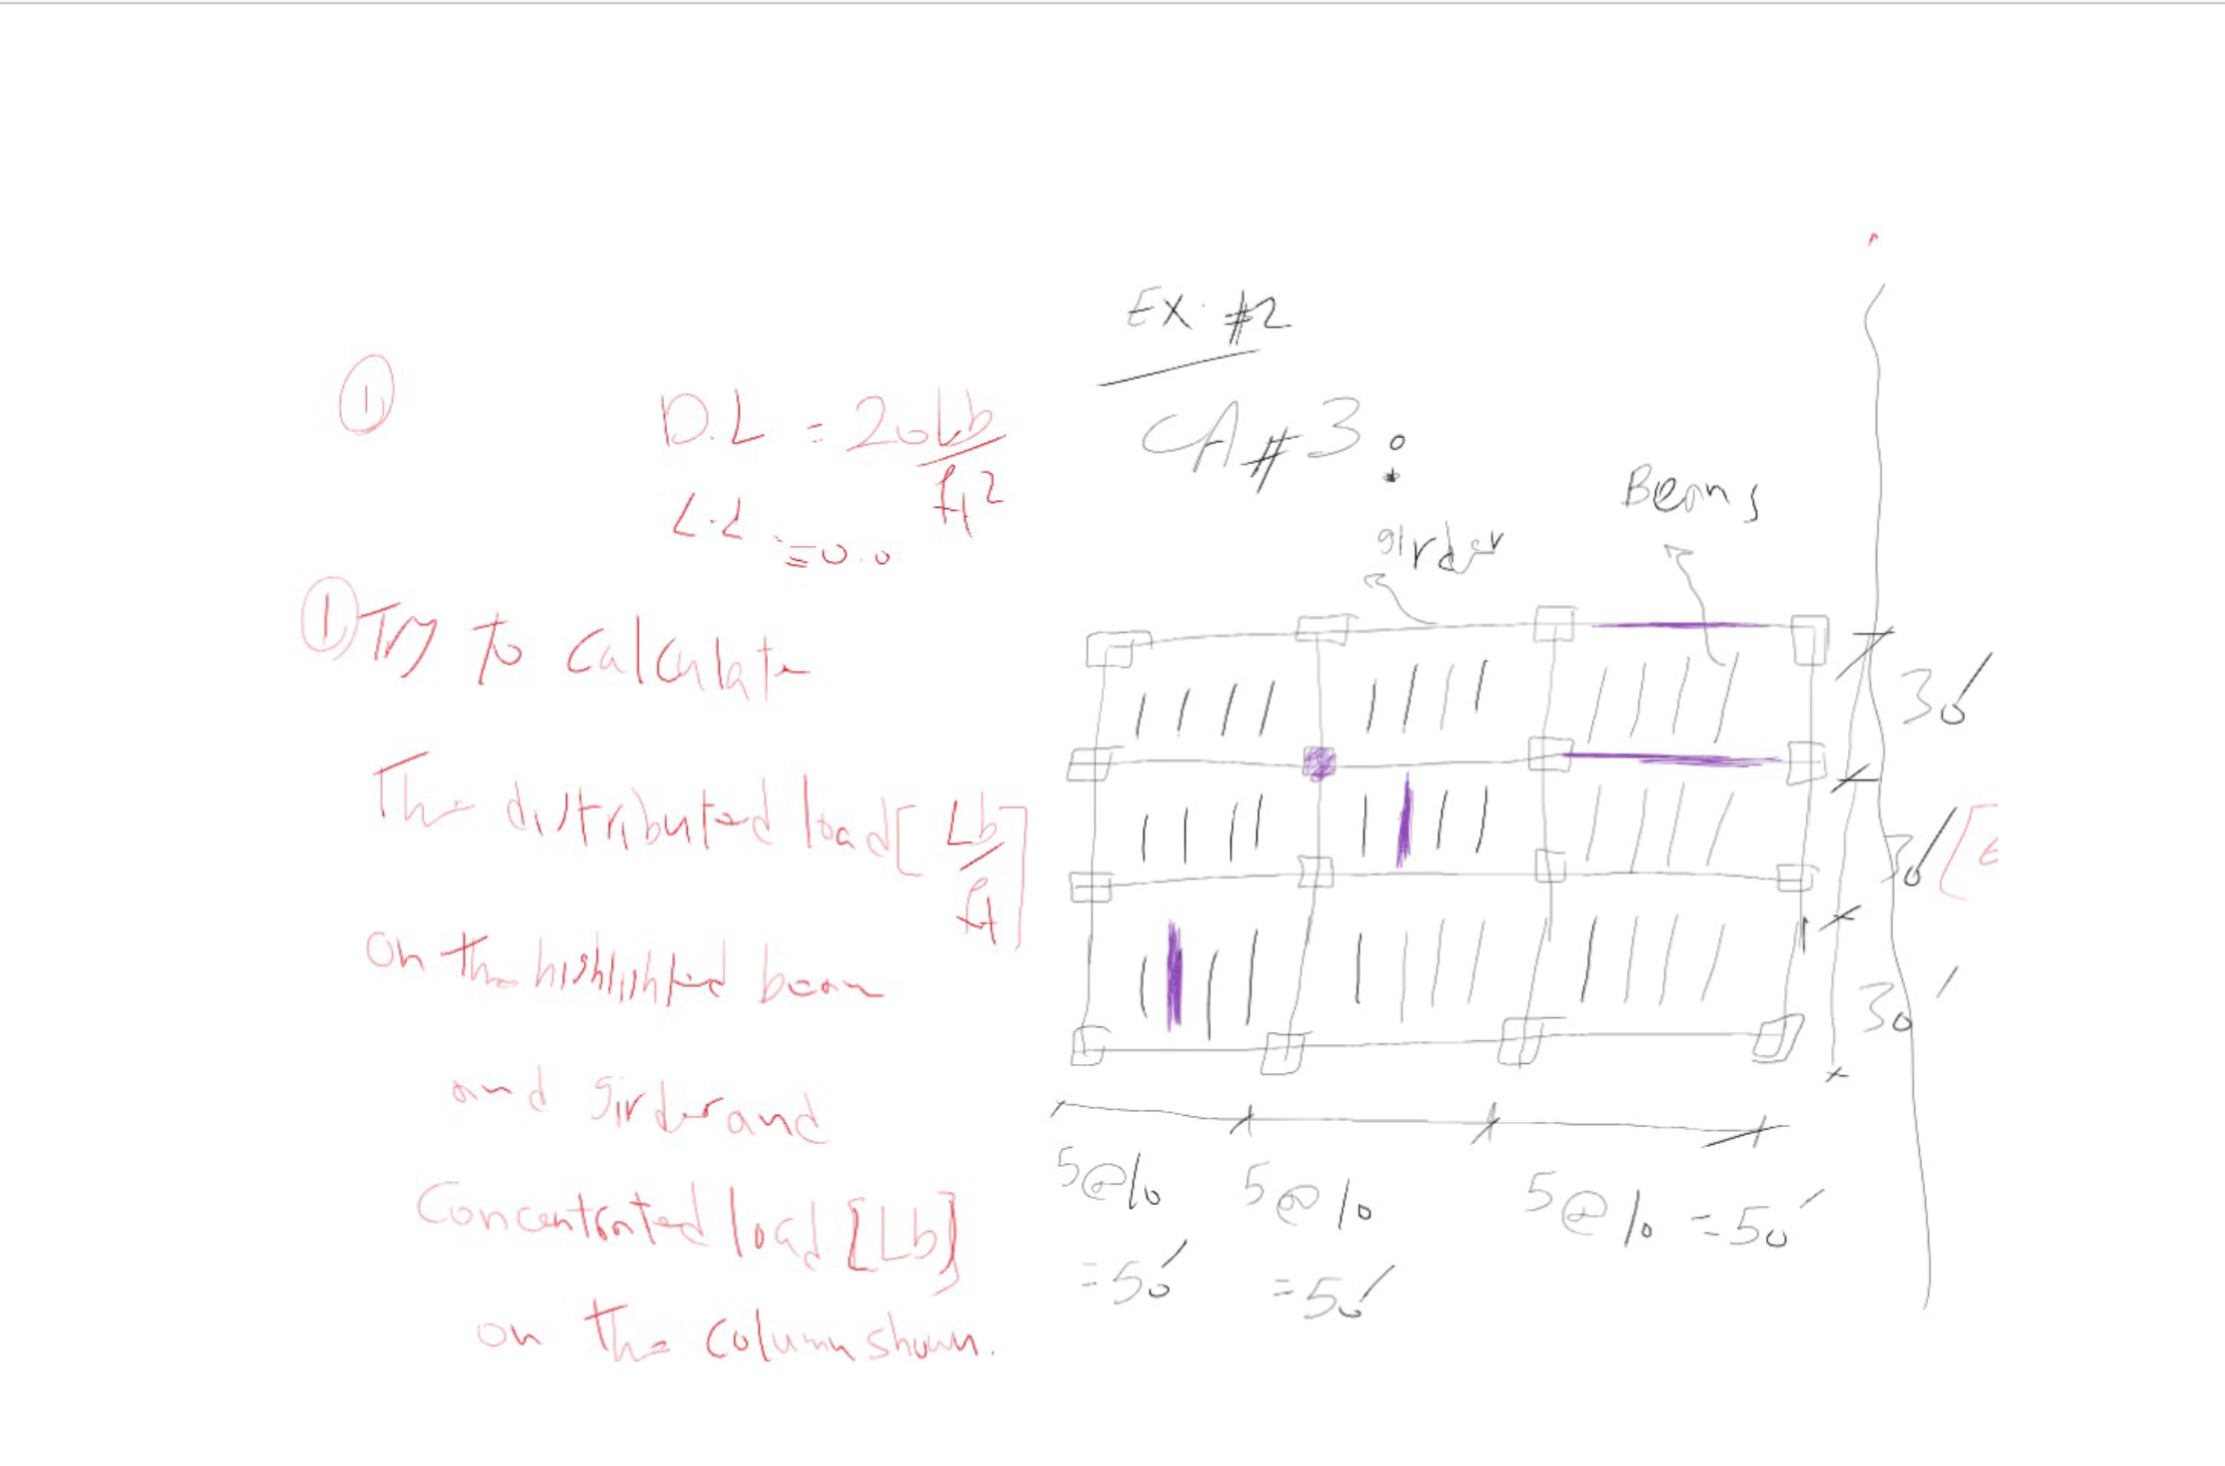 ①
D.L = 20 Lb/ft²
L.L = 0.0
① Try to calculate
The distributed load [Lb/ft]
on the highlighted beam
and girder and
Concentrated load [Lb]
on the column shown.
EX. #2
CA #3:
girder
Beams
30'
30'
30'
5@10
=50'
5@10
=50'
5@10 =50'